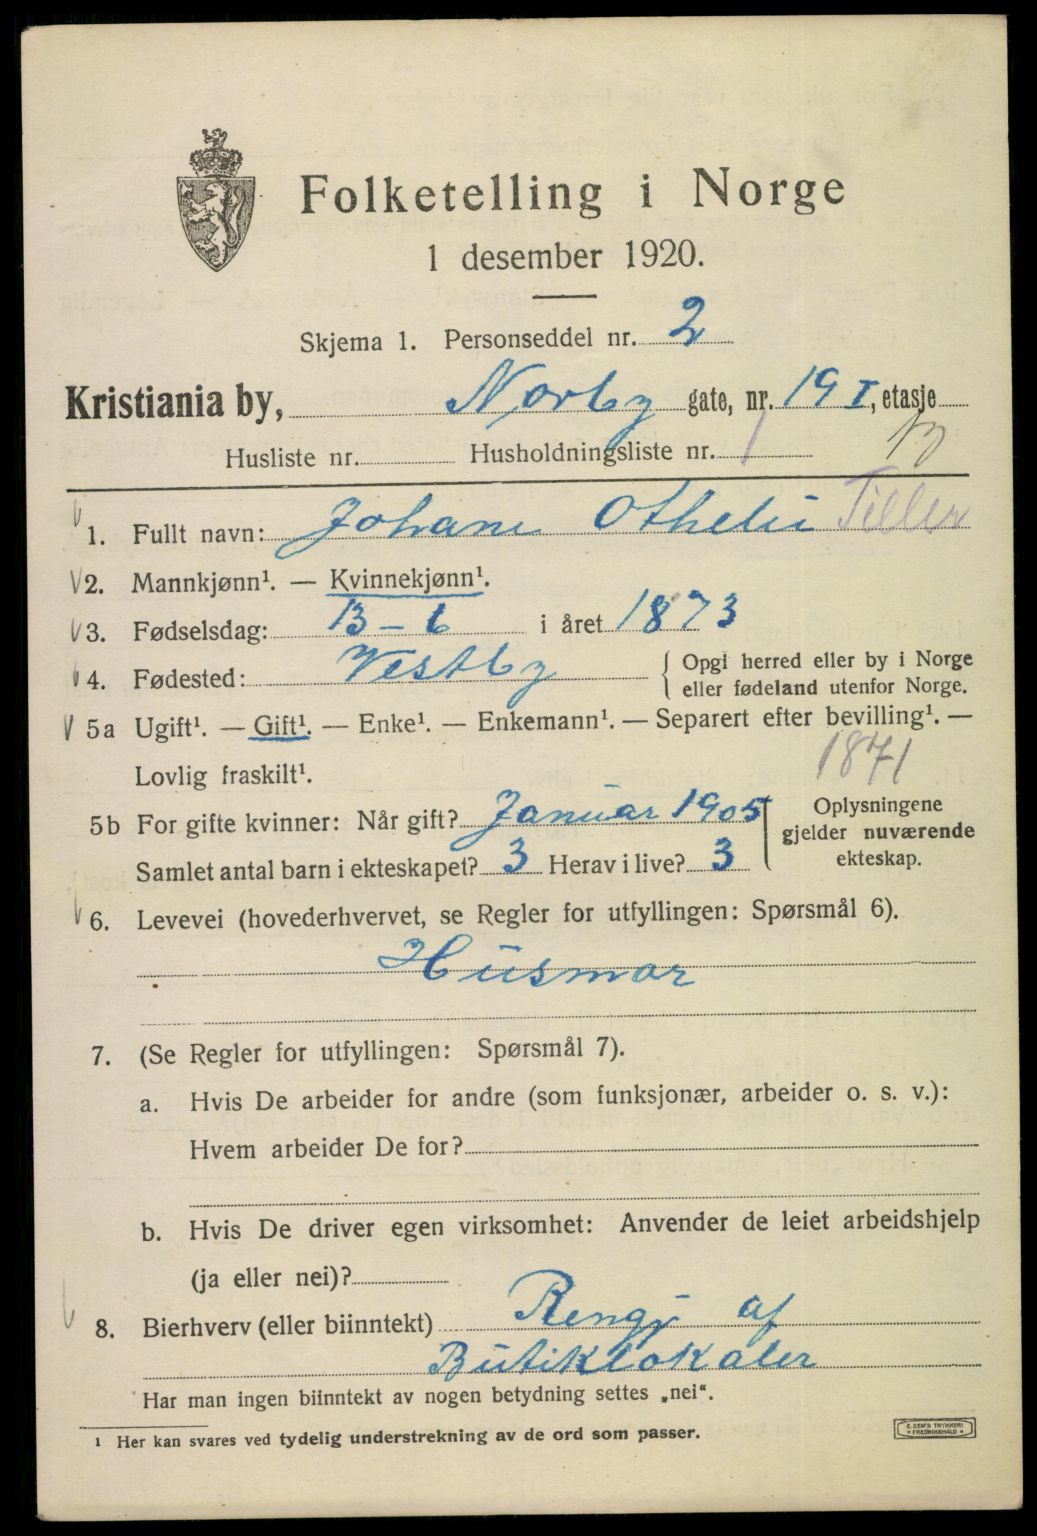 Folketelling i Norge
1 desember 1920.
Skjema 1. Personseddel nr. 2
Kristiania by, Norby gate, nr. 19 I, etasje
Husliste nr. Husholdningsliste nr. 1
1. Fullt navn: Johane Othelie Tiller
2. Mannkjønn¹. — Kvinnekjønn¹.
3. Fødselsdag: 13 - 6 i året 1873
4. Fødested: Vestby { Opgi herred eller by i Norge
eller fødeland utenfor Norge.
5a Ugift¹. — Gift¹. — Enke¹. — Enkemann¹. — Separert efter bevilling¹. —
Lovlig fraskilt¹. 1871
5b For gifte kvinner: Når gift? Januar 1905
Samlet antal barn i ekteskapet? 3 Herav i live? 3
Oplysningene
gjelder nuværende
ekteskap.
6. Levevei (hovederhvervet, se Regler for utfyllingen: Spørsmål 6).
Husmor
7. (Se Regler for utfyllingen: Spørsmål 7).
a. Hvis De arbeider for andre (som funksjonær, arbeider o. s. v.):
Hvem arbeider De for?
b. Hvis De driver egen virksomhet: Anvender de leiet arbeidshjelp
(ja eller nei)?
8. Bierhverv (eller biinntekt) Rengj af
Butiklokaler
Har man ingen biinntekt av nogen betydning settes „nei“.
¹ Her kan svares ved tydelig understrekning av de ord som passer.
E. SEM'S TRYKKERI
FREDRIKSHALD